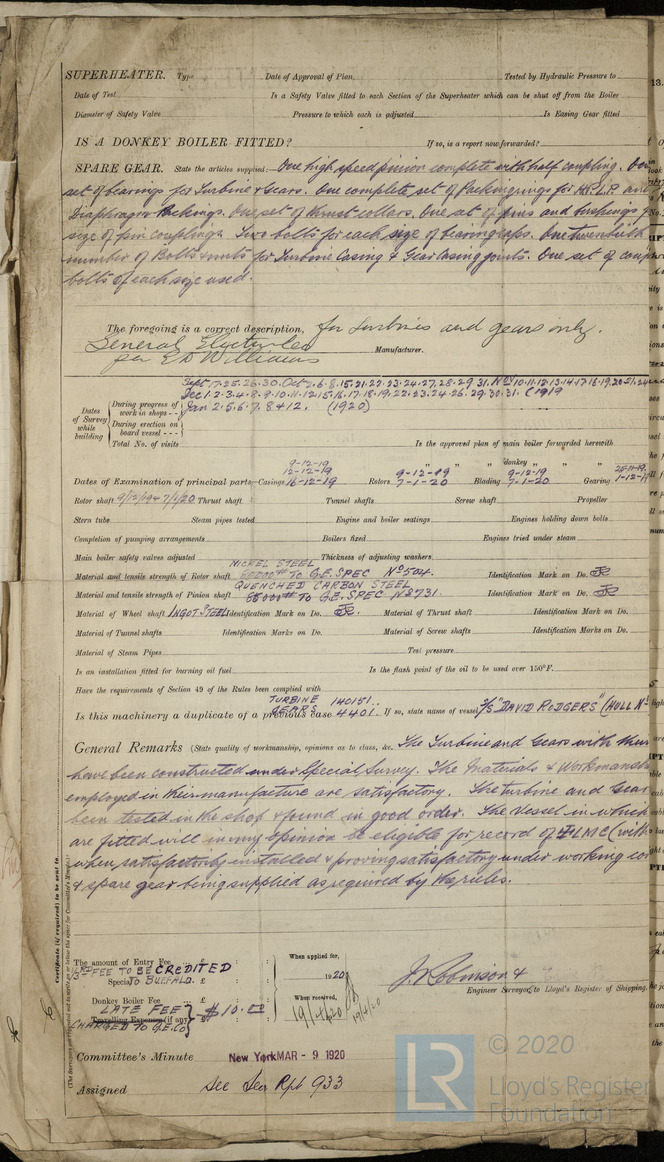 SUPERHEATER. Type Date of Approval of Plan Tested by Hydraulic Pressure to
Date of Test Is a Safety Valve fitted to each Section of the Superheater which can be shut off from the Boiler
Diameter of Safety Valve Pressure to which each is adjusted Is Easing Gear fitted
IS A DONKEY BOILER FITTED? If so, is a report now forwarded?
SPARE GEAR. State the articles supplied:— One high speed pinion complete with half coupling. One
set of bearings for Turbine & Gears. One complete set of Packing rings for H.P. L.P. and
Diaphragm Packings. One set of thrust collars. One set of pins and bushings
size of pin couplings. Two bolts for each size of bearing caps. One twentieth
number of Bolts & nuts for Turbine Casing & Gear Casing joints. One set of
bolts of each size used.
The foregoing is a correct description, for turbines and gears only.
General Electric Co
per E D Williams Manufacturer.
Sept. 17. 25. 26. 30. Oct 2. 6. 8. 15. 21. 22. 23. 24. 27. 28. 29. 31. Nov 10. 11. 12. 13. 14. 17. 18. 19. 20. 21. 24
Dec 1. 2. 3. 4. 8. 9. 10. 11. 12. 15. 16. 17. 18. 19. 22. 23. 24. 26. 29. 30. 31. (1919
Jan 2. 5. 6. 7. 8 & 12. (1920)
Dates of Survey while building
During progress of work in shops - -
During erection on board vessel - - -
Total No. of visits Is the approved plan of main boiler forwarded herewith
" " " donkey " " "
Dates of Examination of principal parts—Casings 9-12-19 12-12-19 16-12-19 Rotors 9-12-19 7-1-20 Blading 9-12-19 7-1-20 Gearing 25-11-19 1-12-19
Rotor shaft 9/12/19 & 7/1/20 Thrust shaft Tunnel shafts Screw shaft Propeller
Stern tube Steam pipes tested Engine and boiler seatings Engines holding down bolts
Completion of pumping arrangements Boilers fixed Engines tried under steam
Main boiler safety valves adjusted Thickness of adjusting washers
Material and tensile strength of Rotor shaft NICKEL STEEL TO G.E. SPEC No 504. Identification Mark on Do. JR
Material and tensile strength of Pinion shaft QUENCHED CARBON STEEL TO G.E. SPEC No 731. Identification Mark on Do. JR
Material of Wheel shaft INGOT STEEL Identification Mark on Do. JR. Material of Thrust shaft Identification Mark on Do.
Material of Tunnel shafts Identification Marks on Do. Material of Screw shafts Identification Marks on Do.
Material of Steam Pipes Test pressure
Is an installation fitted for burning oil fuel Is the flash point of the oil to be used over 150°F.
Have the requirements of Section 49 of the Rules been complied with
Is this machinery a duplicate of a previous case TURBINE 140151 GEARS 4401. If so, state name of vessel S/S "DAVID RODGERS" (HULL No
General Remarks (State quality of workmanship, opinions as to class, &c. The Turbine and Gears with their
have been constructed under Special Survey. The Materials & Workmanship
employed in their manufacture are satisfactory. The turbine and Gears
been tested in the shop & found in good order. The Vessel in which
are fitted will in my opinion be eligible for record of LMC (with
when satisfactorily installed & proving satisfactory under working con
& spare gear being supplied as required by the rules.
Certificate (if required) to be sent to
The amount of Entry Fee £ : : When applied for,
FEE TO BE CREDITED
Special TO BUFFALO. £ : : 1920
Donkey Boiler Fee £ : : When received,
LATE FEE $10.00 19/4/20 19/4/20
Travelling Expenses (if any)
CHARGED TO G.E. Co
J. Robinson &
Engineer Surveyor to Lloyd's Register of Shipping.
Committee's Minute New York MAR - 9 1920
Assigned See Rpt 933
LR © 2020
Lloyd's Register
Foundation